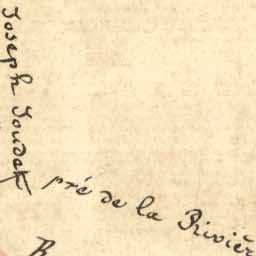 Joseph Toudet
pré de la Rivièr